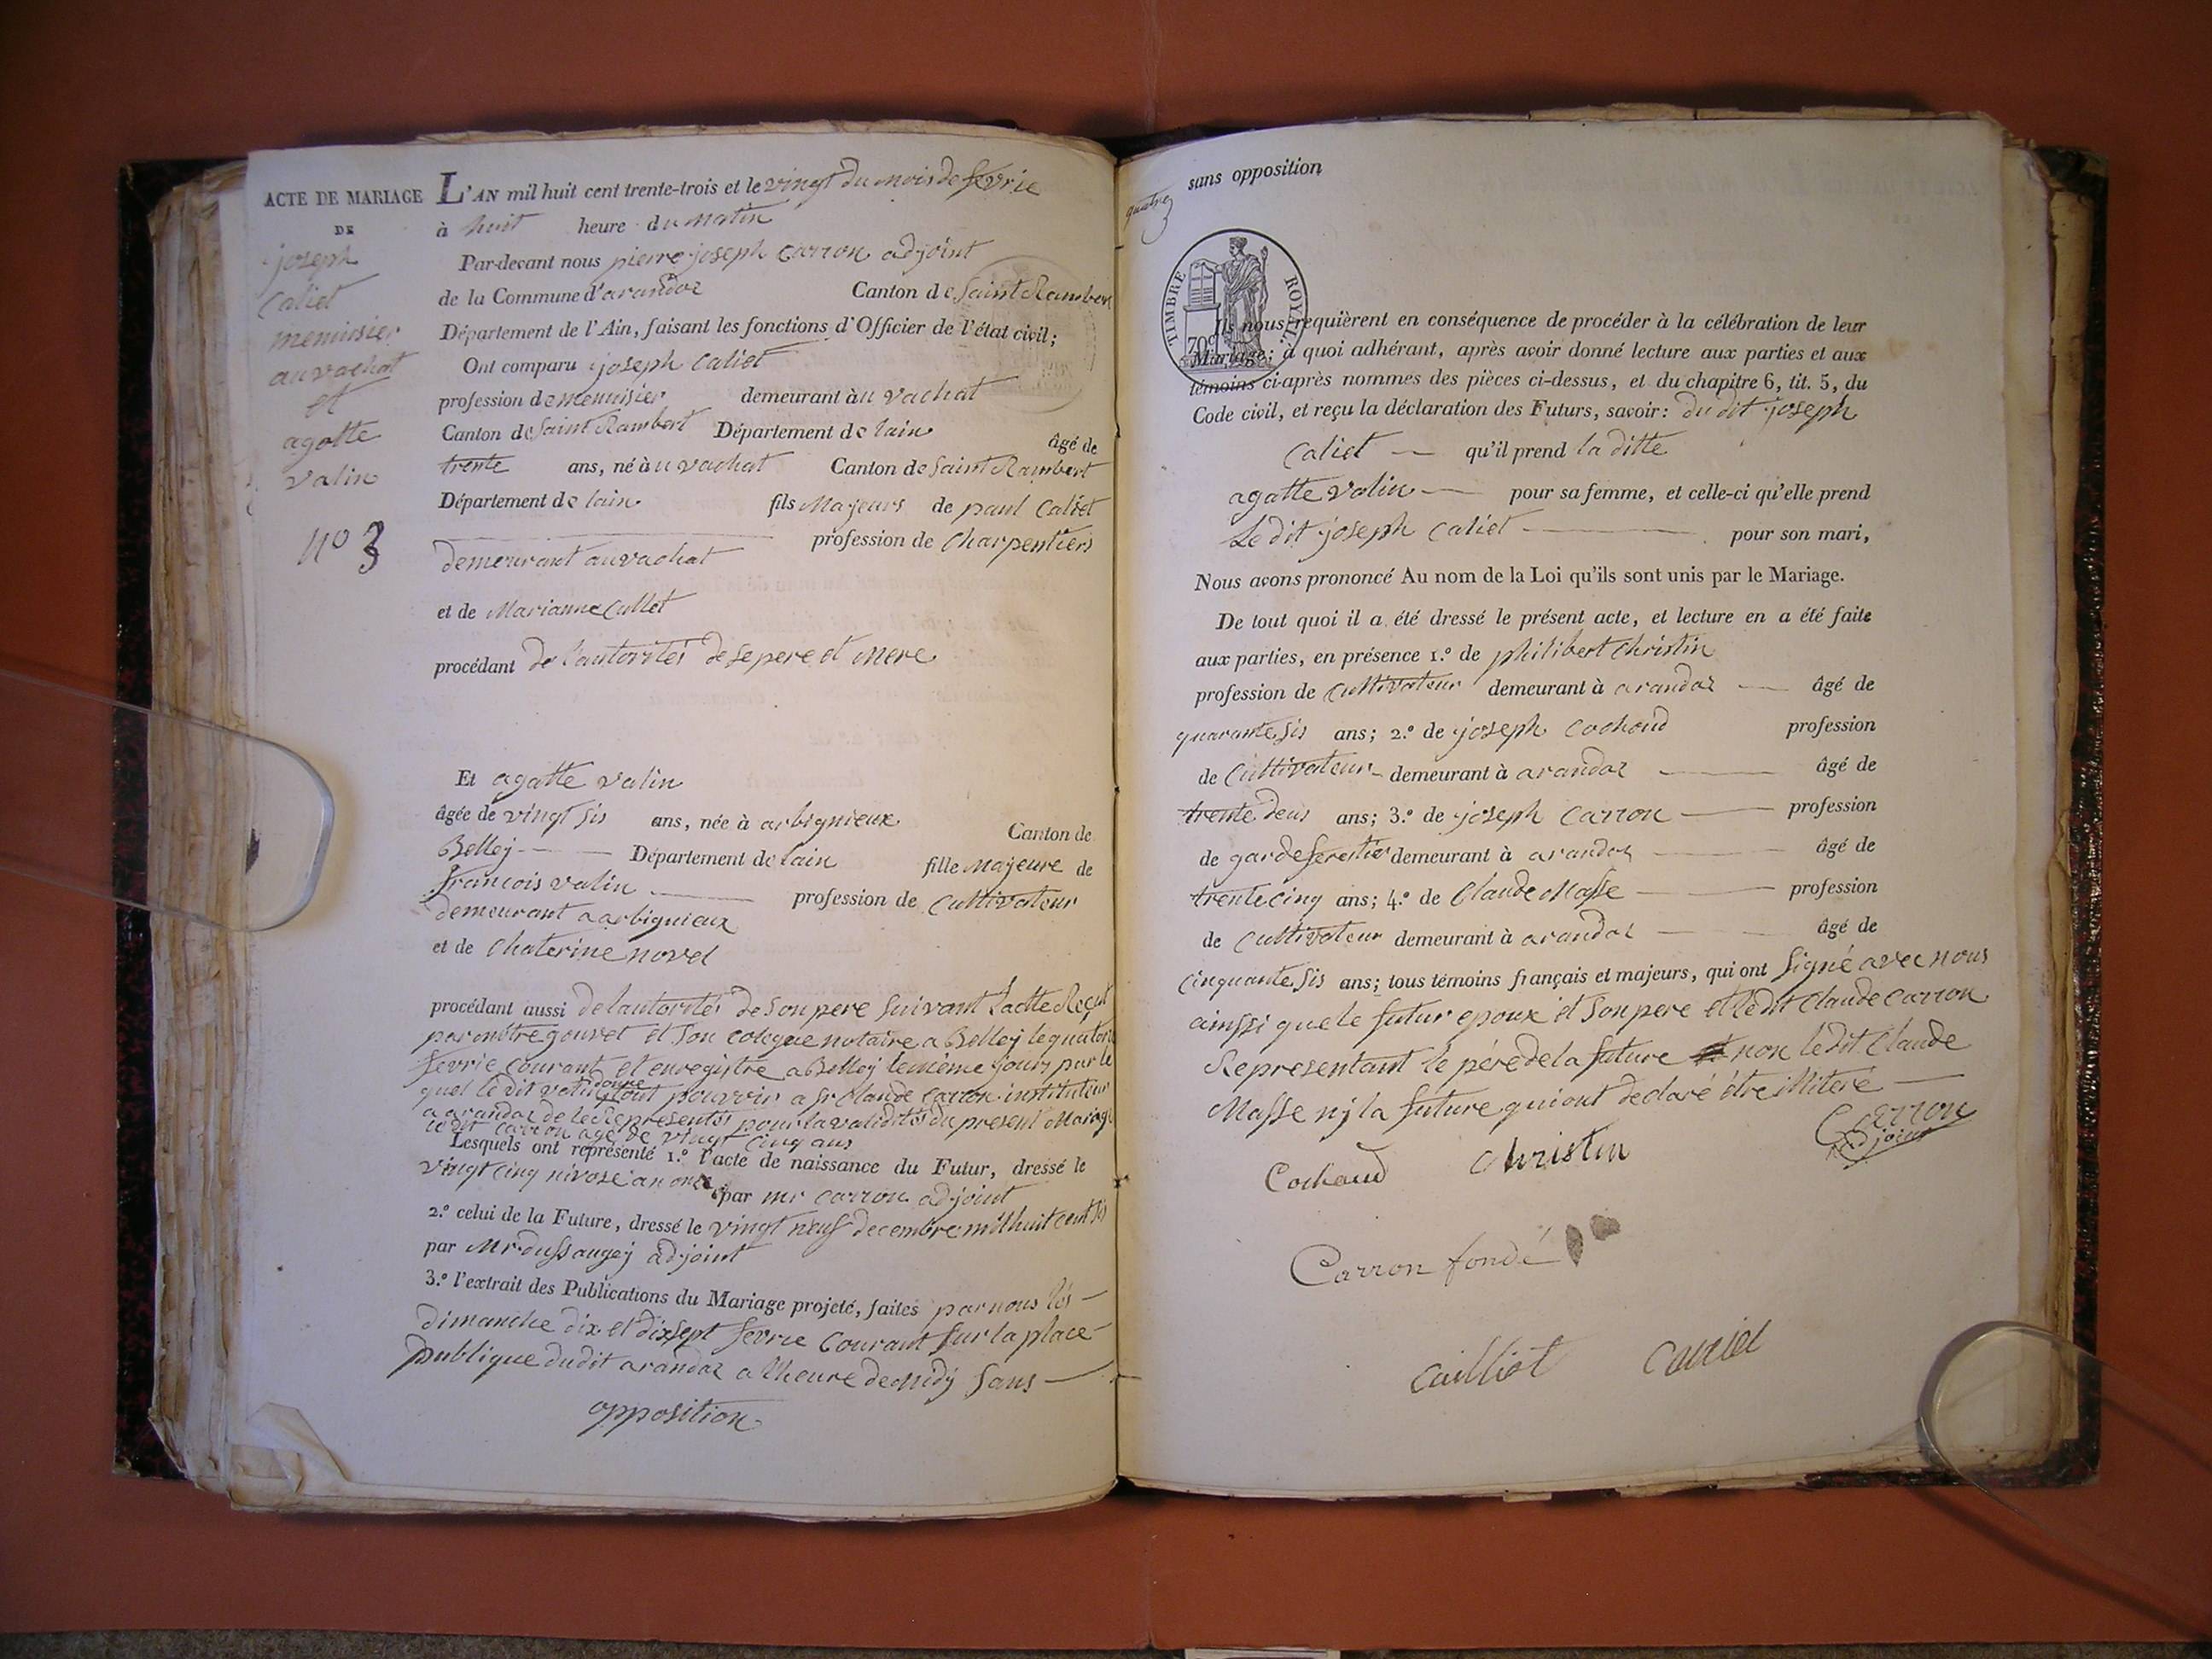 ACTE DE MARIAGE
DE
joseph
Caliet
menuisier
au vachat
et
agatte
valin
No 3
L'AN mil huit cent trente-trois et le vingt du mois de fevrie
à huit heure du matin
Par-devant nous pierre joseph Carron adjoint
de la Commune d'arandaz Canton de Saint Rambert
Département de l'Ain, faisant les fonctions d'Officier de l'état civil;
Ont comparu joseph Caliet
profession de menuisier demeurant à u vachat
Canton de Saint Rambert Département de lain âgé de
trente ans, né à u vachat Canton de Saint Rambert
Département de lain fils Majeurs de paul Caliet
profession de Charpentiers
demeurant au vachat
et de Marianne Cullet
procédant de l'autorités de se pere et mere
Et agatte valin
âgée de vingt sis ans, née à arbignieux Canton de
Belley Département de lain fille Majeure de
francois valin profession de Cultivateur
demeurant a arbignieux
et de Chaterine novel
procédant aussi de lautorités de son pere suivant lactte Reçut
par mètre gouvet et son colegue notaire a Belley le quatorze
fevrie courant et enregistre a Belley le même jours par le
quel le dit valin donne tout pouvoir a sr Claude Carron instituteur
a arandaz de le Representés pour la validités du present Mariage
le dit Carron age de vingt cinq ans
Lesquels ont représenté 1.° l'acte de naissance du Futur, dressé le
vingt cinq nivose an onze par mr carron adjoint
2.° celui de la Future, dressé le vingt neuf decembre mil huit cent sis
par Mr dussaugey adjoint
3.° l'extrait des Publications du Mariage projeté, faites par nous lés
dimanche dix et dix sept fevrie Courant sur la place
publique dudit arandaz a lheure de midy sans
opposition
sans opposition
quatre
TIMBRE ROYAL
70c
Ils nous requièrent en conséquence de procéder à la célébration de leur
Mariage; à quoi adhérant, après avoir donné lecture aux parties et aux
témoins ci-après nommés des pièces ci-dessus, et du chapitre 6, tit. 5, du
Code civil, et reçu la déclaration des Futurs, savoir: du dit joseph
Caliet qu'il prend la ditte
agatte valin pour sa femme, et celle-ci qu'elle prend
Le dit joseph Caliet pour son mari,
Nous avons prononcé Au nom de la Loi qu'ils sont unis par le Mariage.
De tout quoi il a été dressé le présent acte, et lecture en a été faite
aux parties, en présence 1.° de philibert Christin
profession de Cultivateur demeurant à arandaz âgé de
quarante sis ans; 2.° de joseph Cochaud profession
de Cultivateur demeurant à arandaz âgé de
trente deus ans; 3.° de joseph Carron profession
de garde forestier demeurant à arandaz âgé de
trente cinq ans; 4.° de Claude Masse profession
de Cultivateur demeurant à arandaz âgé de
cinquante sis ans; tous témoins français et majeurs, qui ont signé avec nous
ainssi que le futur epoux et son pere et le dit Claude Carron
Representant le pére de la future non le dit Claude
Masse nj la future qui ont declaré être illiteré
Carron
adjoint
Cochaud Christin
Carron fondé
Cailliot Calliet